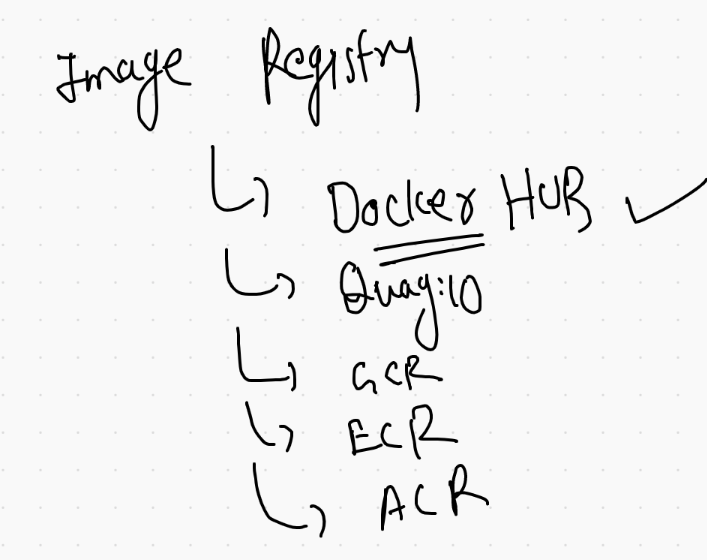 Image Registry
Docker HUB
Quay:10
GCR
ECR
ACR